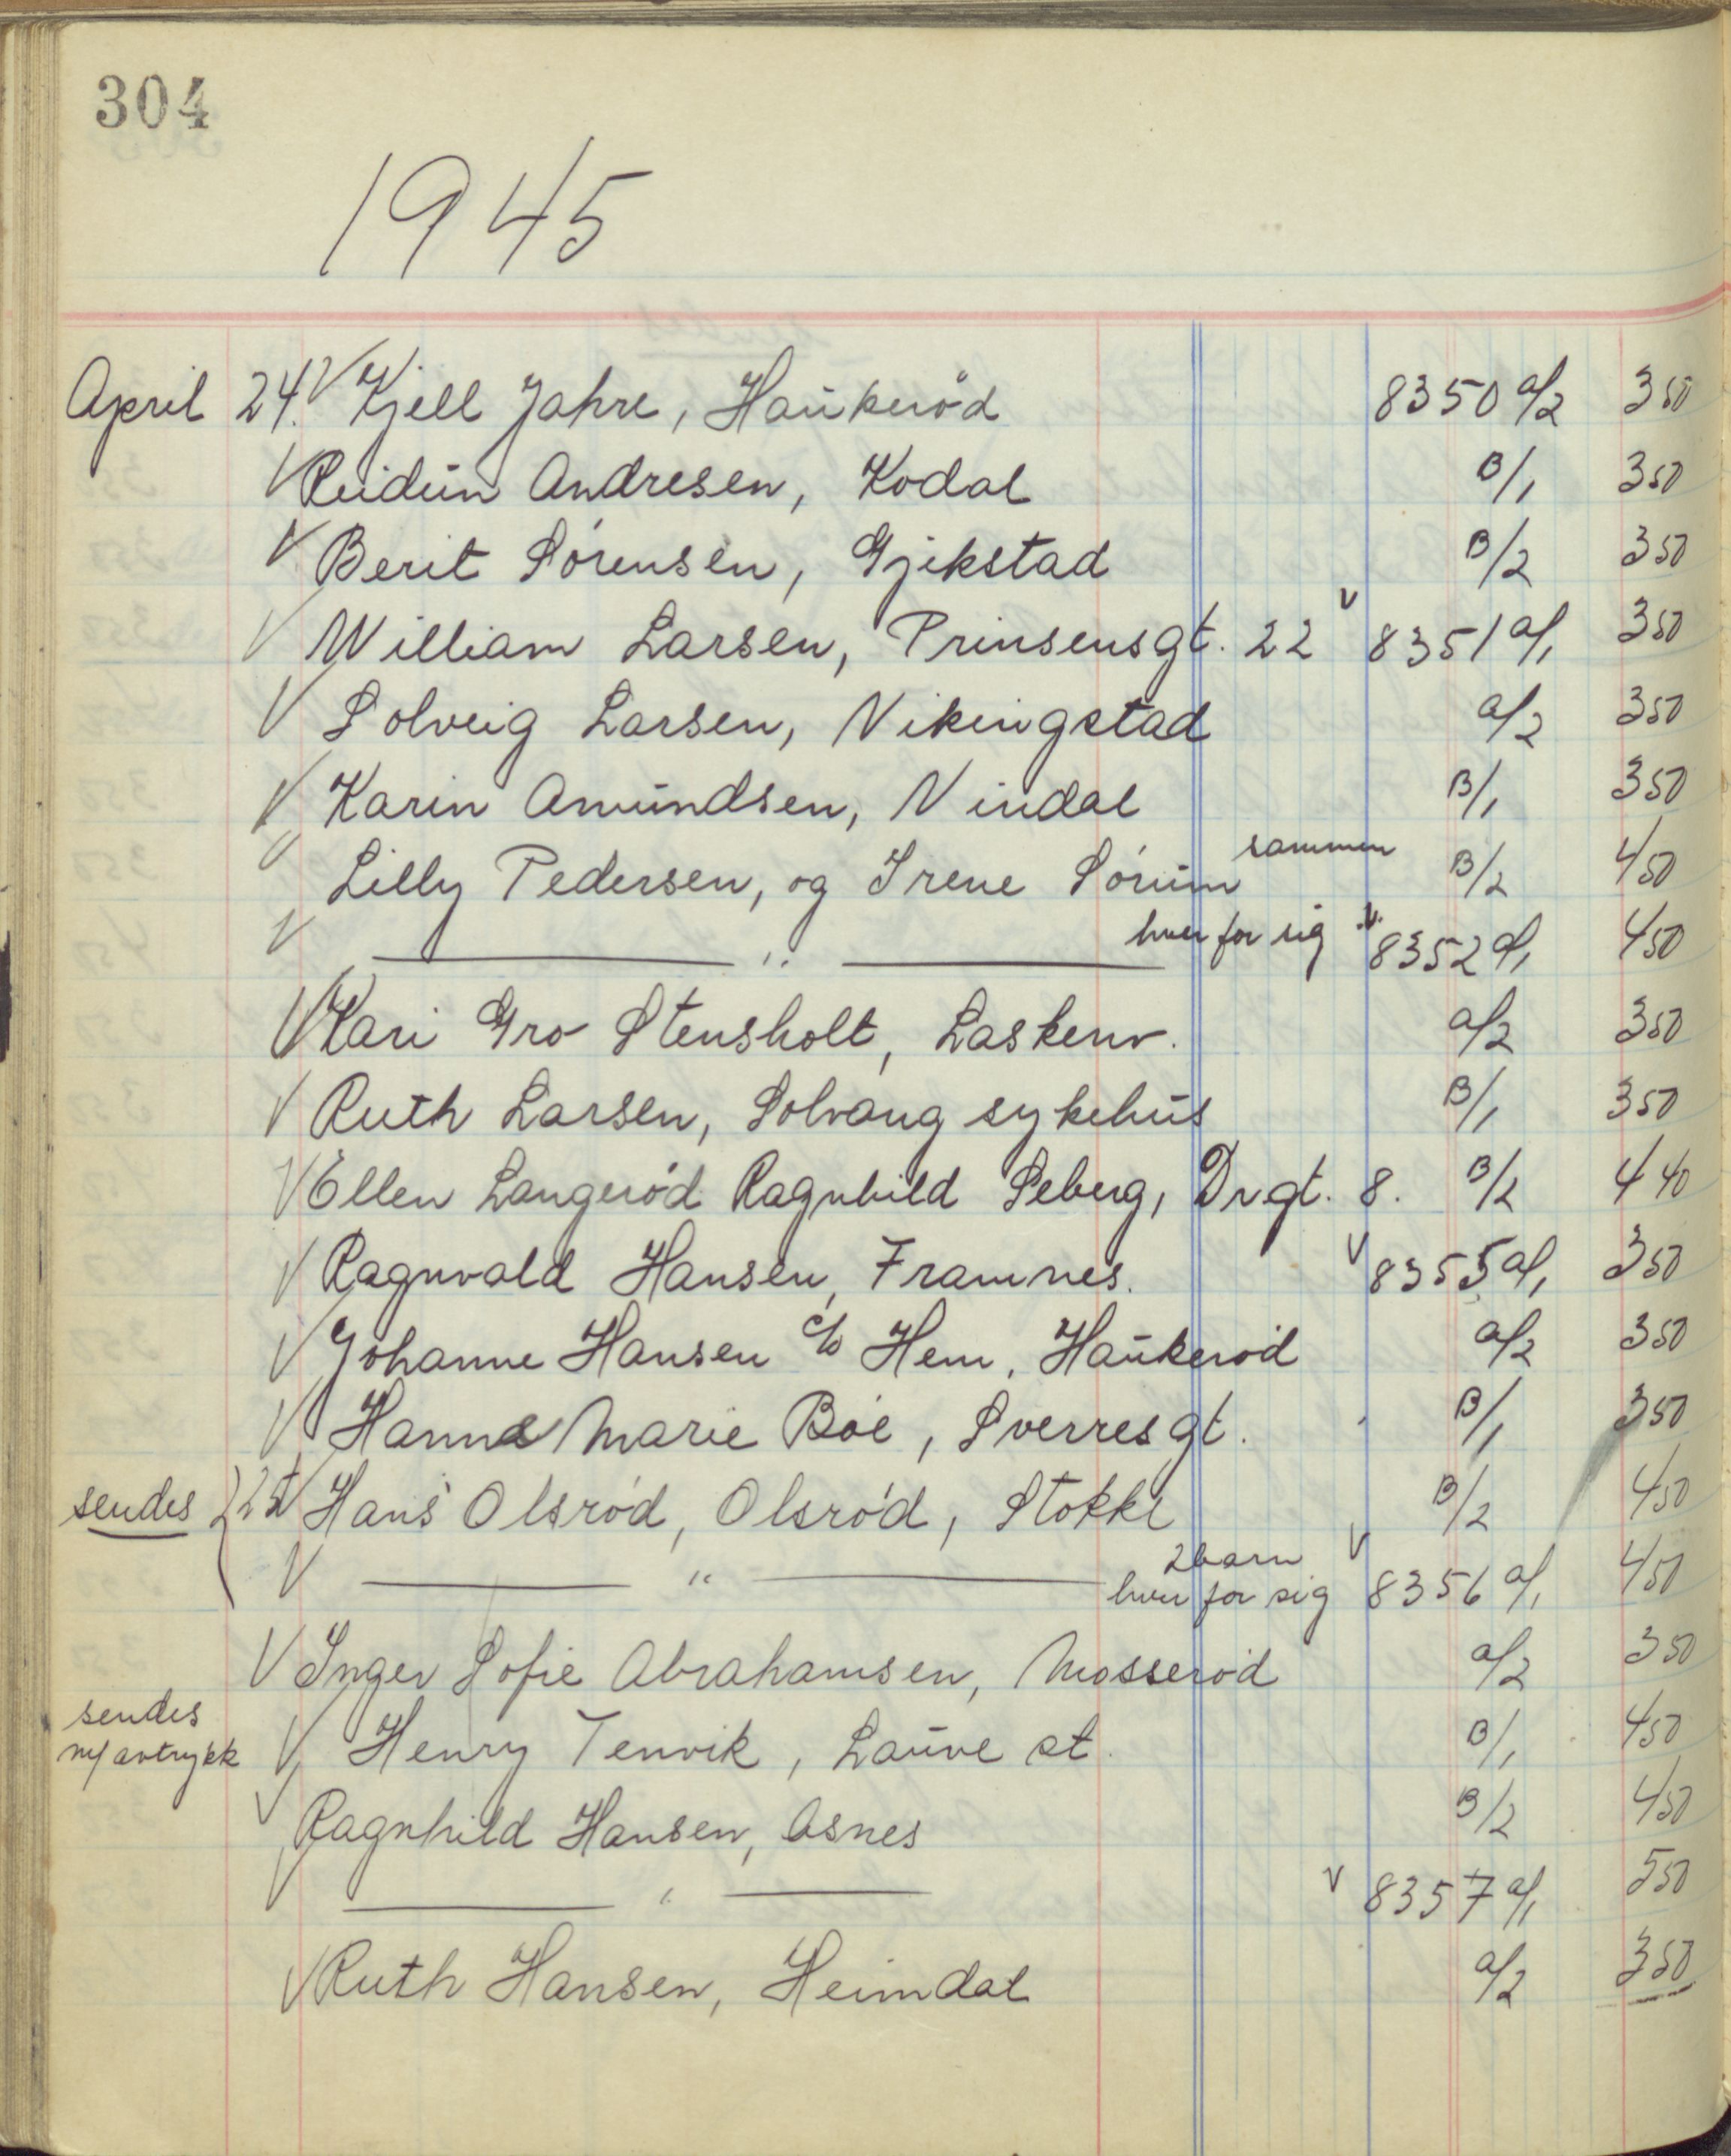 304
1945
April 24. V Kjell Jahre, Haukerød 8350 a/2 350
V Reidun Andresen, Kodal B/1 350
V Berit Sørensen, Gjekstad B/2 350
V William Larsen, Prinsensgt. 22 V 8351 a/1 350
V Solveig Larsen, Vikingstad a/2 350
V Karin Amundsen, Vindal B/1 350
V Lilly Pedersen, og Irene Sørum sammen B/2 450
V — " — hver for sig V 8352 a/1 450
V Kari Gro Stensholt, Laskenv. a/2 350
V Ruth Larsen, Solvang sykehus B/1 350
V Ellen Langerød Ragnhild Seberg, Drgt. 8. B/2 440
V Ragnvald Hansen, Framnes. V 8355 a/1 350
V Johanne Hansen c/o Hem, Haukerød a/2 350
V Hanna Marie Bøe, Sverresgt. B/1 350
sendes 25 V Hans Olsrød, Olsrød, Stokke B/2 450
V — " — 2 barn hver for sig V 8356 a/1 450
V Inger Sofie Abrahamsen, Mosserød a/2 350
sendes
m/avtrykk V Henry Tenvik, Lauve st. B/1 450
V Ragnhild Hansen, Asnes B/2 450
V — " — V 8357 a/1 550
V Ruth Hansen, Heimdal a/2 350